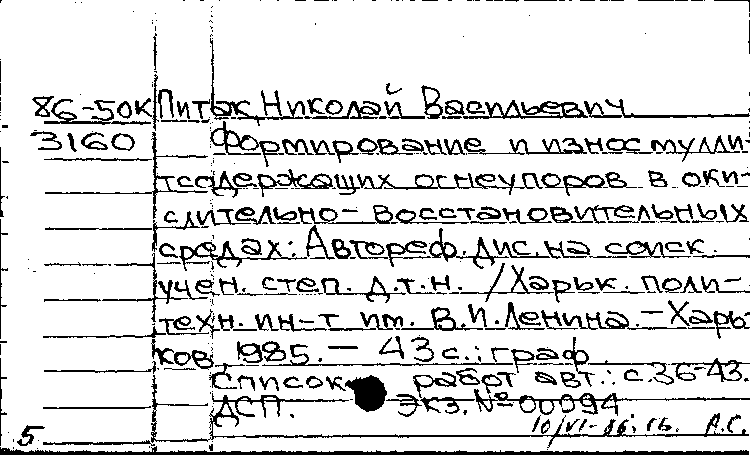 86-50к Питак, Николай Васильевич.
3160 Формирование и износ мулли-
тсодержащих огнеупоров в оки-
слительно-восстановительных
средах: Автореф. дис. на соиск.
учен. степ. д.т.н. /Харьк. поли-
техн. ин-т им. В.И.Ленина. - Харь-
ков, 1985. - 43 с.: граф.
Список работ авт.: с.36-43.
ДСП. Экз. № 00094
10/VI-86.
5 А.С.